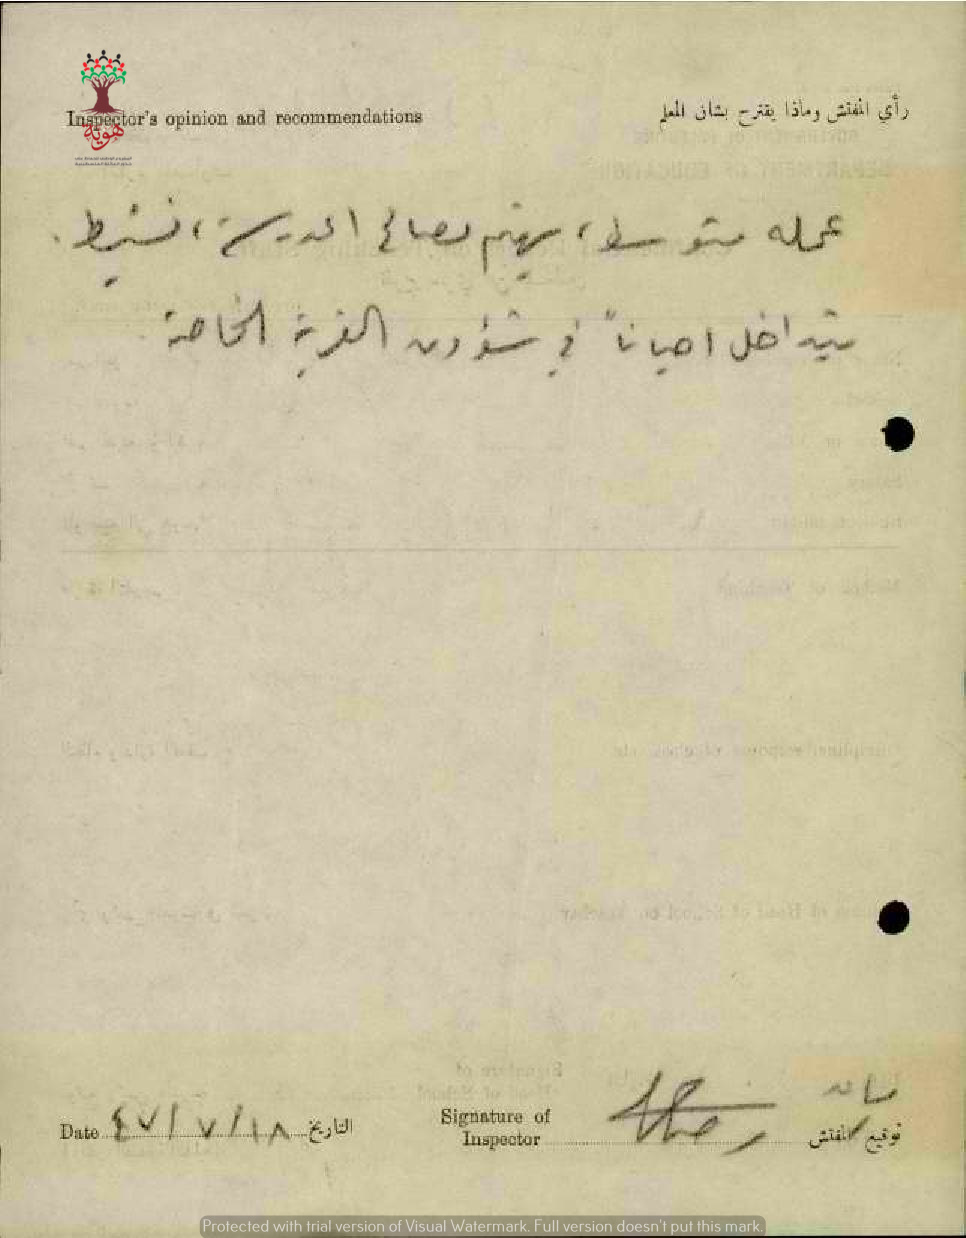 Inspector's opinion and recommendations
رأي المفتش وماذا يقترح بشان المعلم
عمله متوسط، يهتم بصالح المدرسة، نشيط.
يتداخل احياناً في شؤون القرية الخاصة
هوية
Signature of
Inspector
توقيع المفتش
Date ٤٧/٧/١٨ التاريخ
Protected with trial version of Visual Watermark. Full version doesn't put this mark.